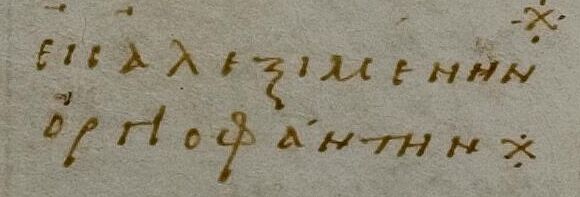 εις ἀλεξιμενην
ὀργιοφάντην ※